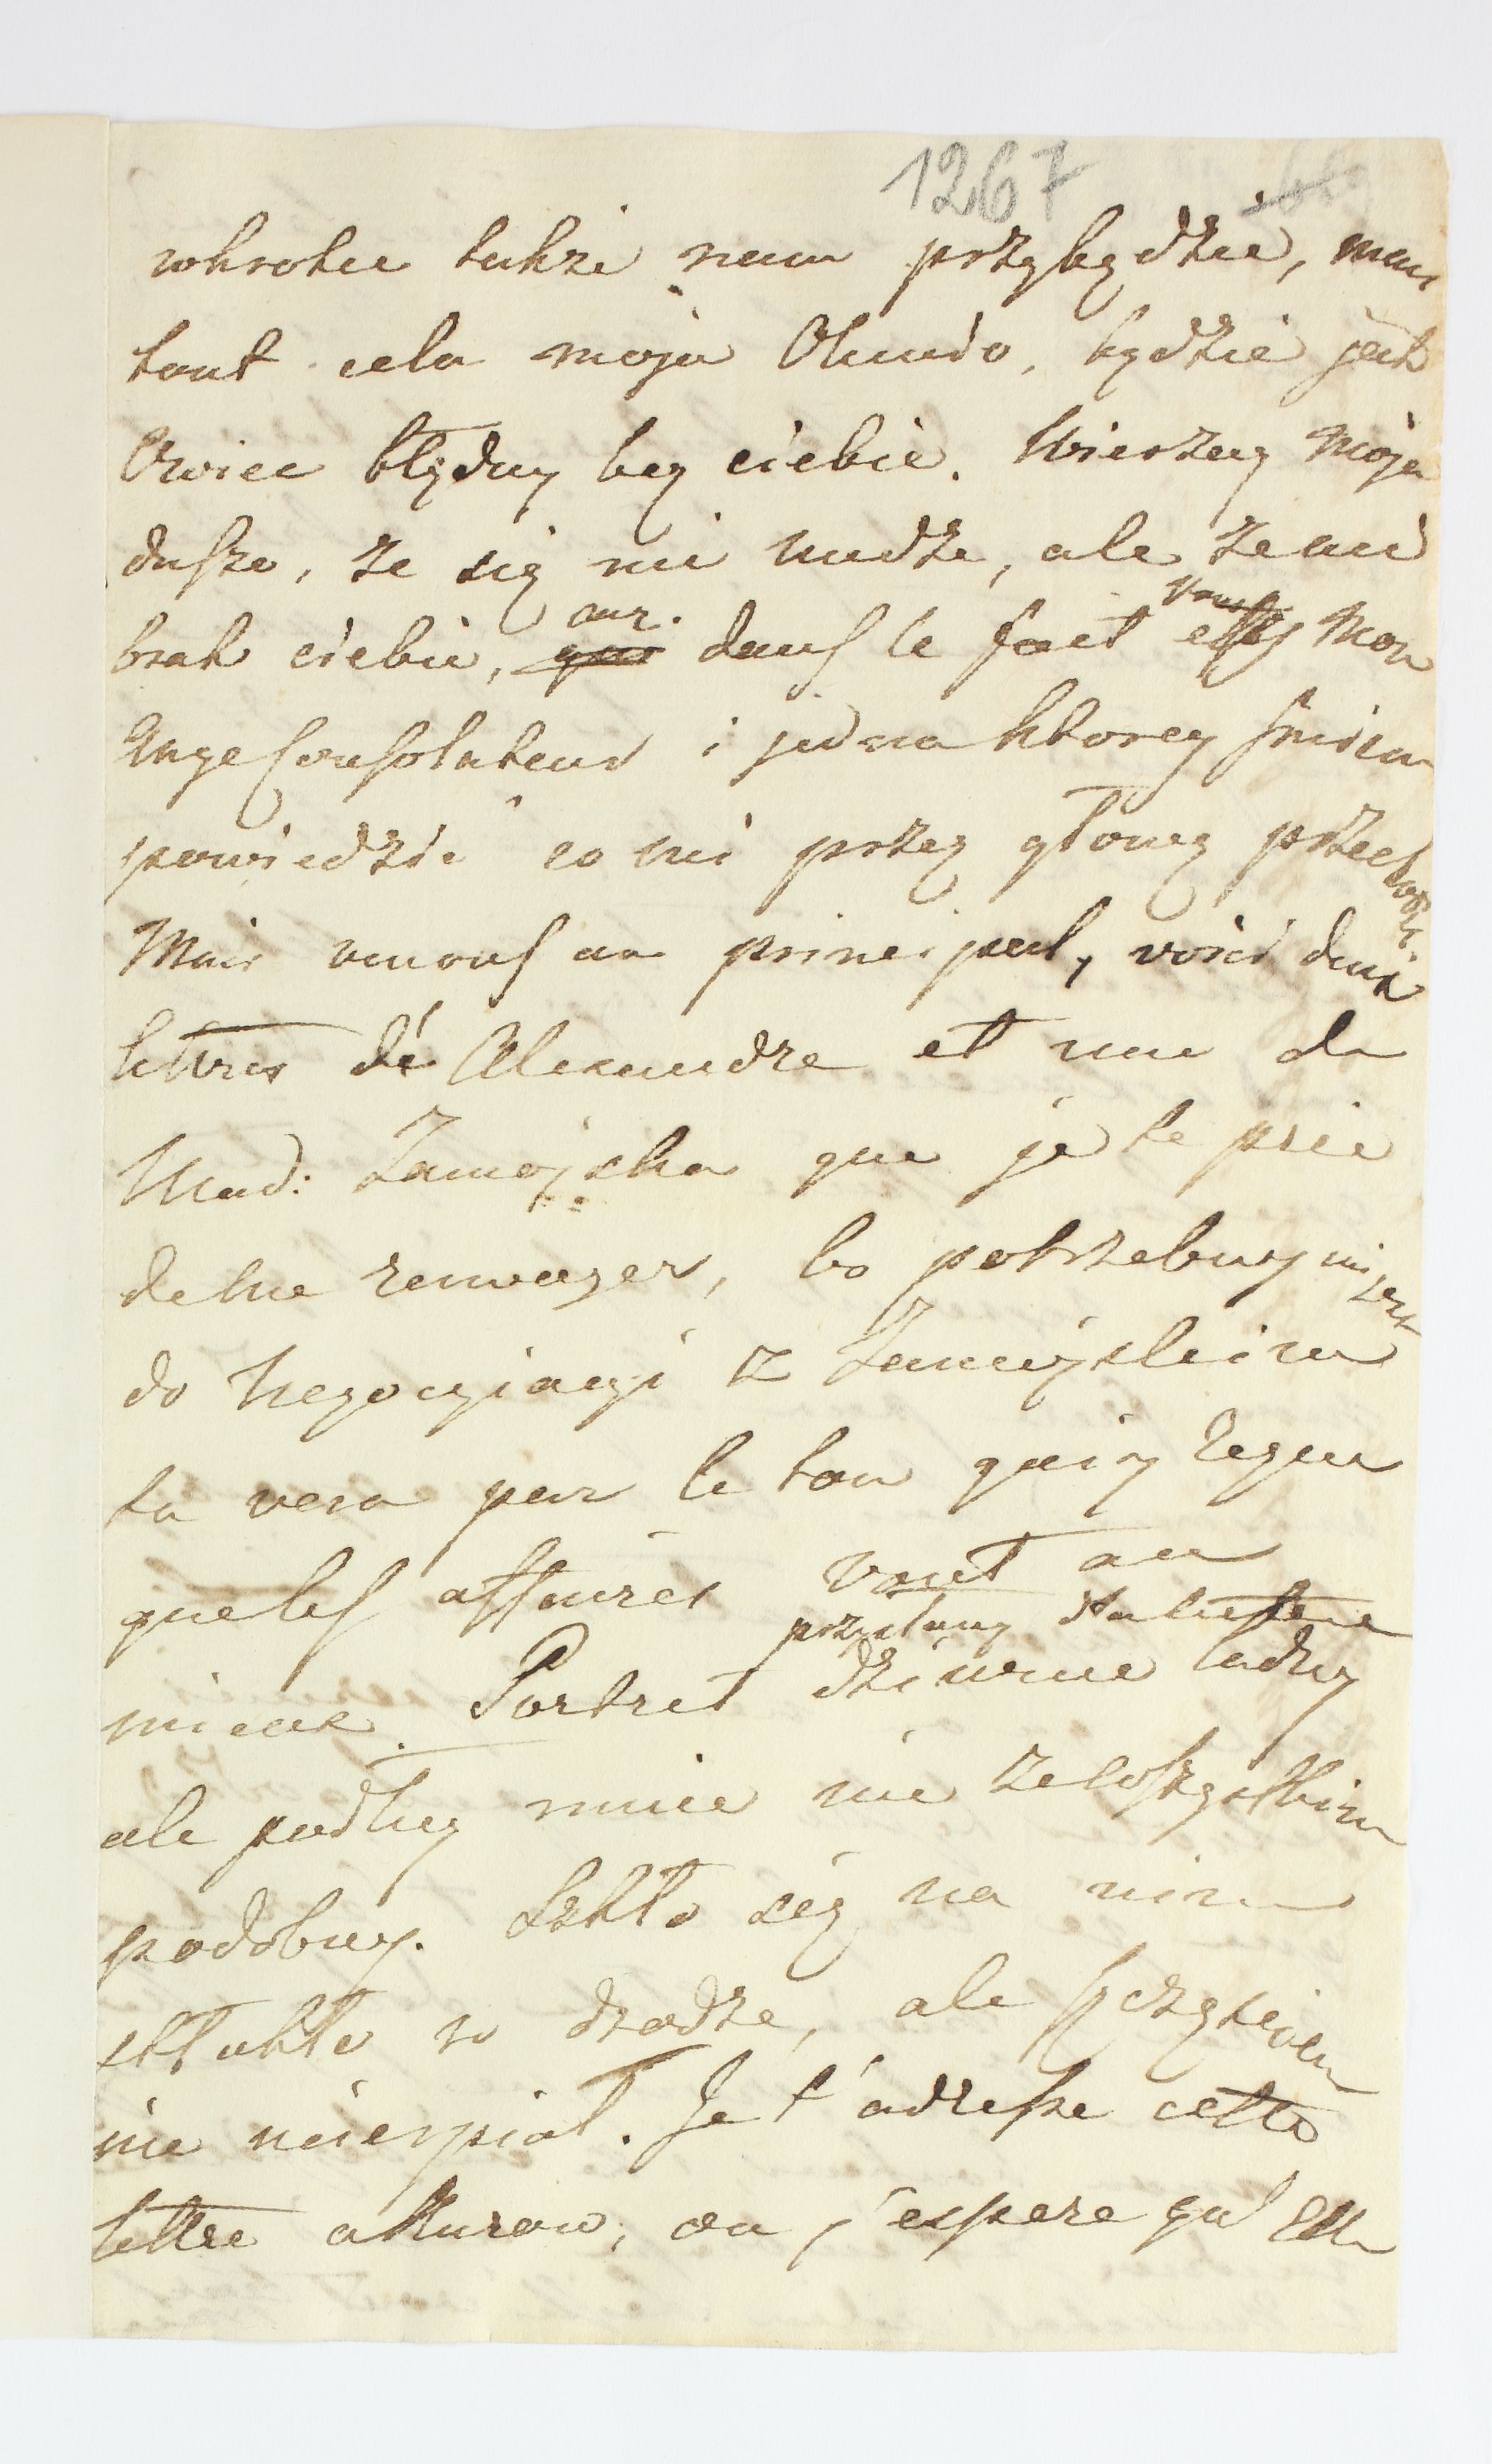 1267
wkrotce takze nam przybędzie, mais
tout cela moja Olunio, będzie jak
Owiec błędny bez ciebie. Wierzay moja
duszo, ze się nie nudze, ale ze mi
brak ciebie, car dans le fait vous etes Mon
Ange Consolateur i jedna ktorey smiem
powiedzie co mi przez głowę przechodzi.
Mais venons au principal, voici deux
lettres de Alexandre et une de
Mad: Zamojska que je te prie
de me renvoyer, bo potrzebny mi jest
do negocyiacyi z Zamojskim
tu vera par le ton qui y regne
que les affaires vont au
mieux. Portret przysłany dziwnie ładny
ale podług mnie nie ze wszystkim
podobny. Szkło się na nim
stłukło w drodze, ale szczęściem
nie ucierpiał. Je t'adresse cette
lettre a Kurow, ou j'espere qu'elle